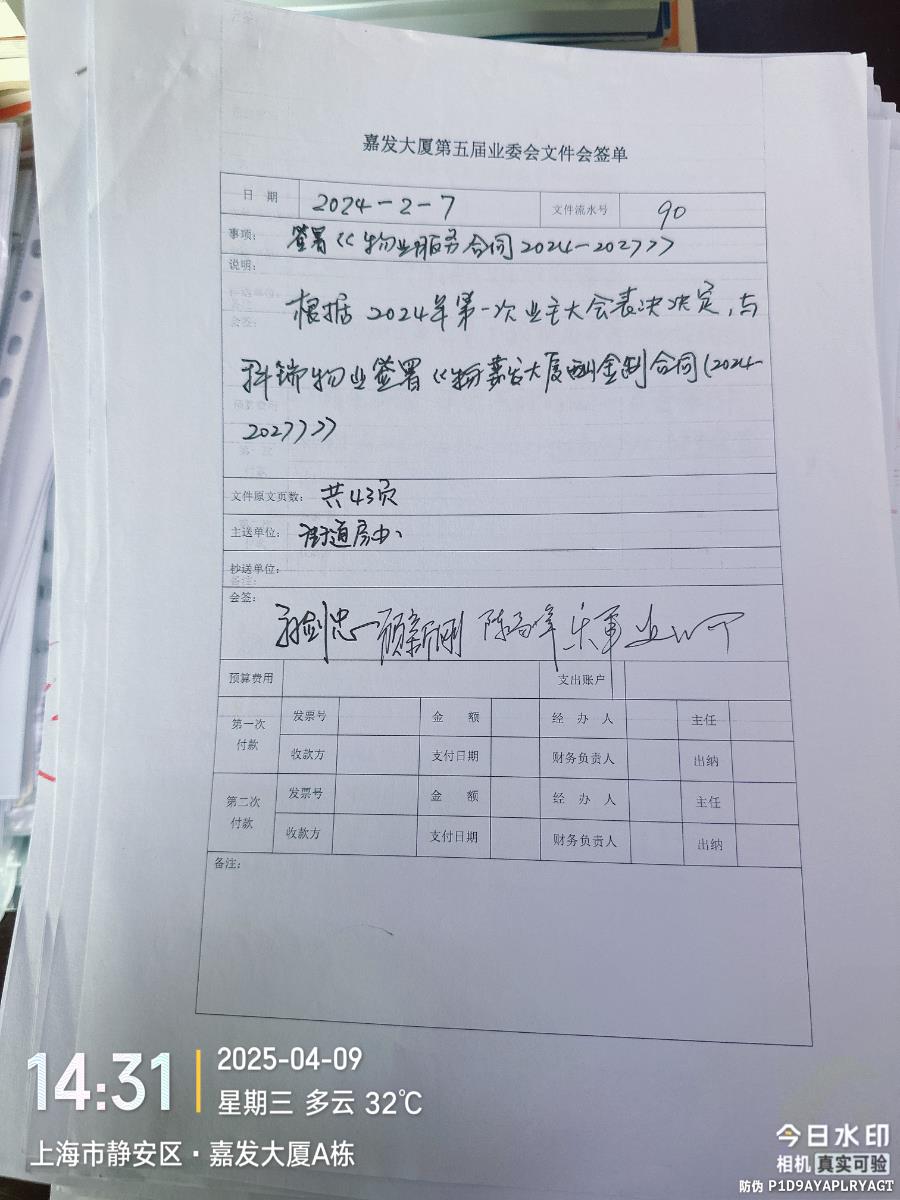 嘉发大厦第五届业委会文件会签单
日 期 2024-2-7 文件流水号 90
事项: 签署《物业服务合同2024-2027》
说明:
根据2024年第一次业主大会表决决定,与
科瑞物业签署《嘉发大厦酬金制合同(2024-
2027)》
文件原文页数: 共43页
主送单位: 街道房办
抄送单位:
会签:
顾新刚
预算费用 支出账户
第一次付款 发票号 金 额 经 办 人 主任
收款方 支付日期 财务负责人 出纳
第二次付款 发票号 金 额 经 办 人 主任
收款方 支付日期 财务负责人 出纳
备注:
14:31 2025-04-09
星期三 多云 32℃
上海市静安区·嘉发大厦A栋
今日水印
相机 真实可验
防伪 P1D9AYAPLRYAGT